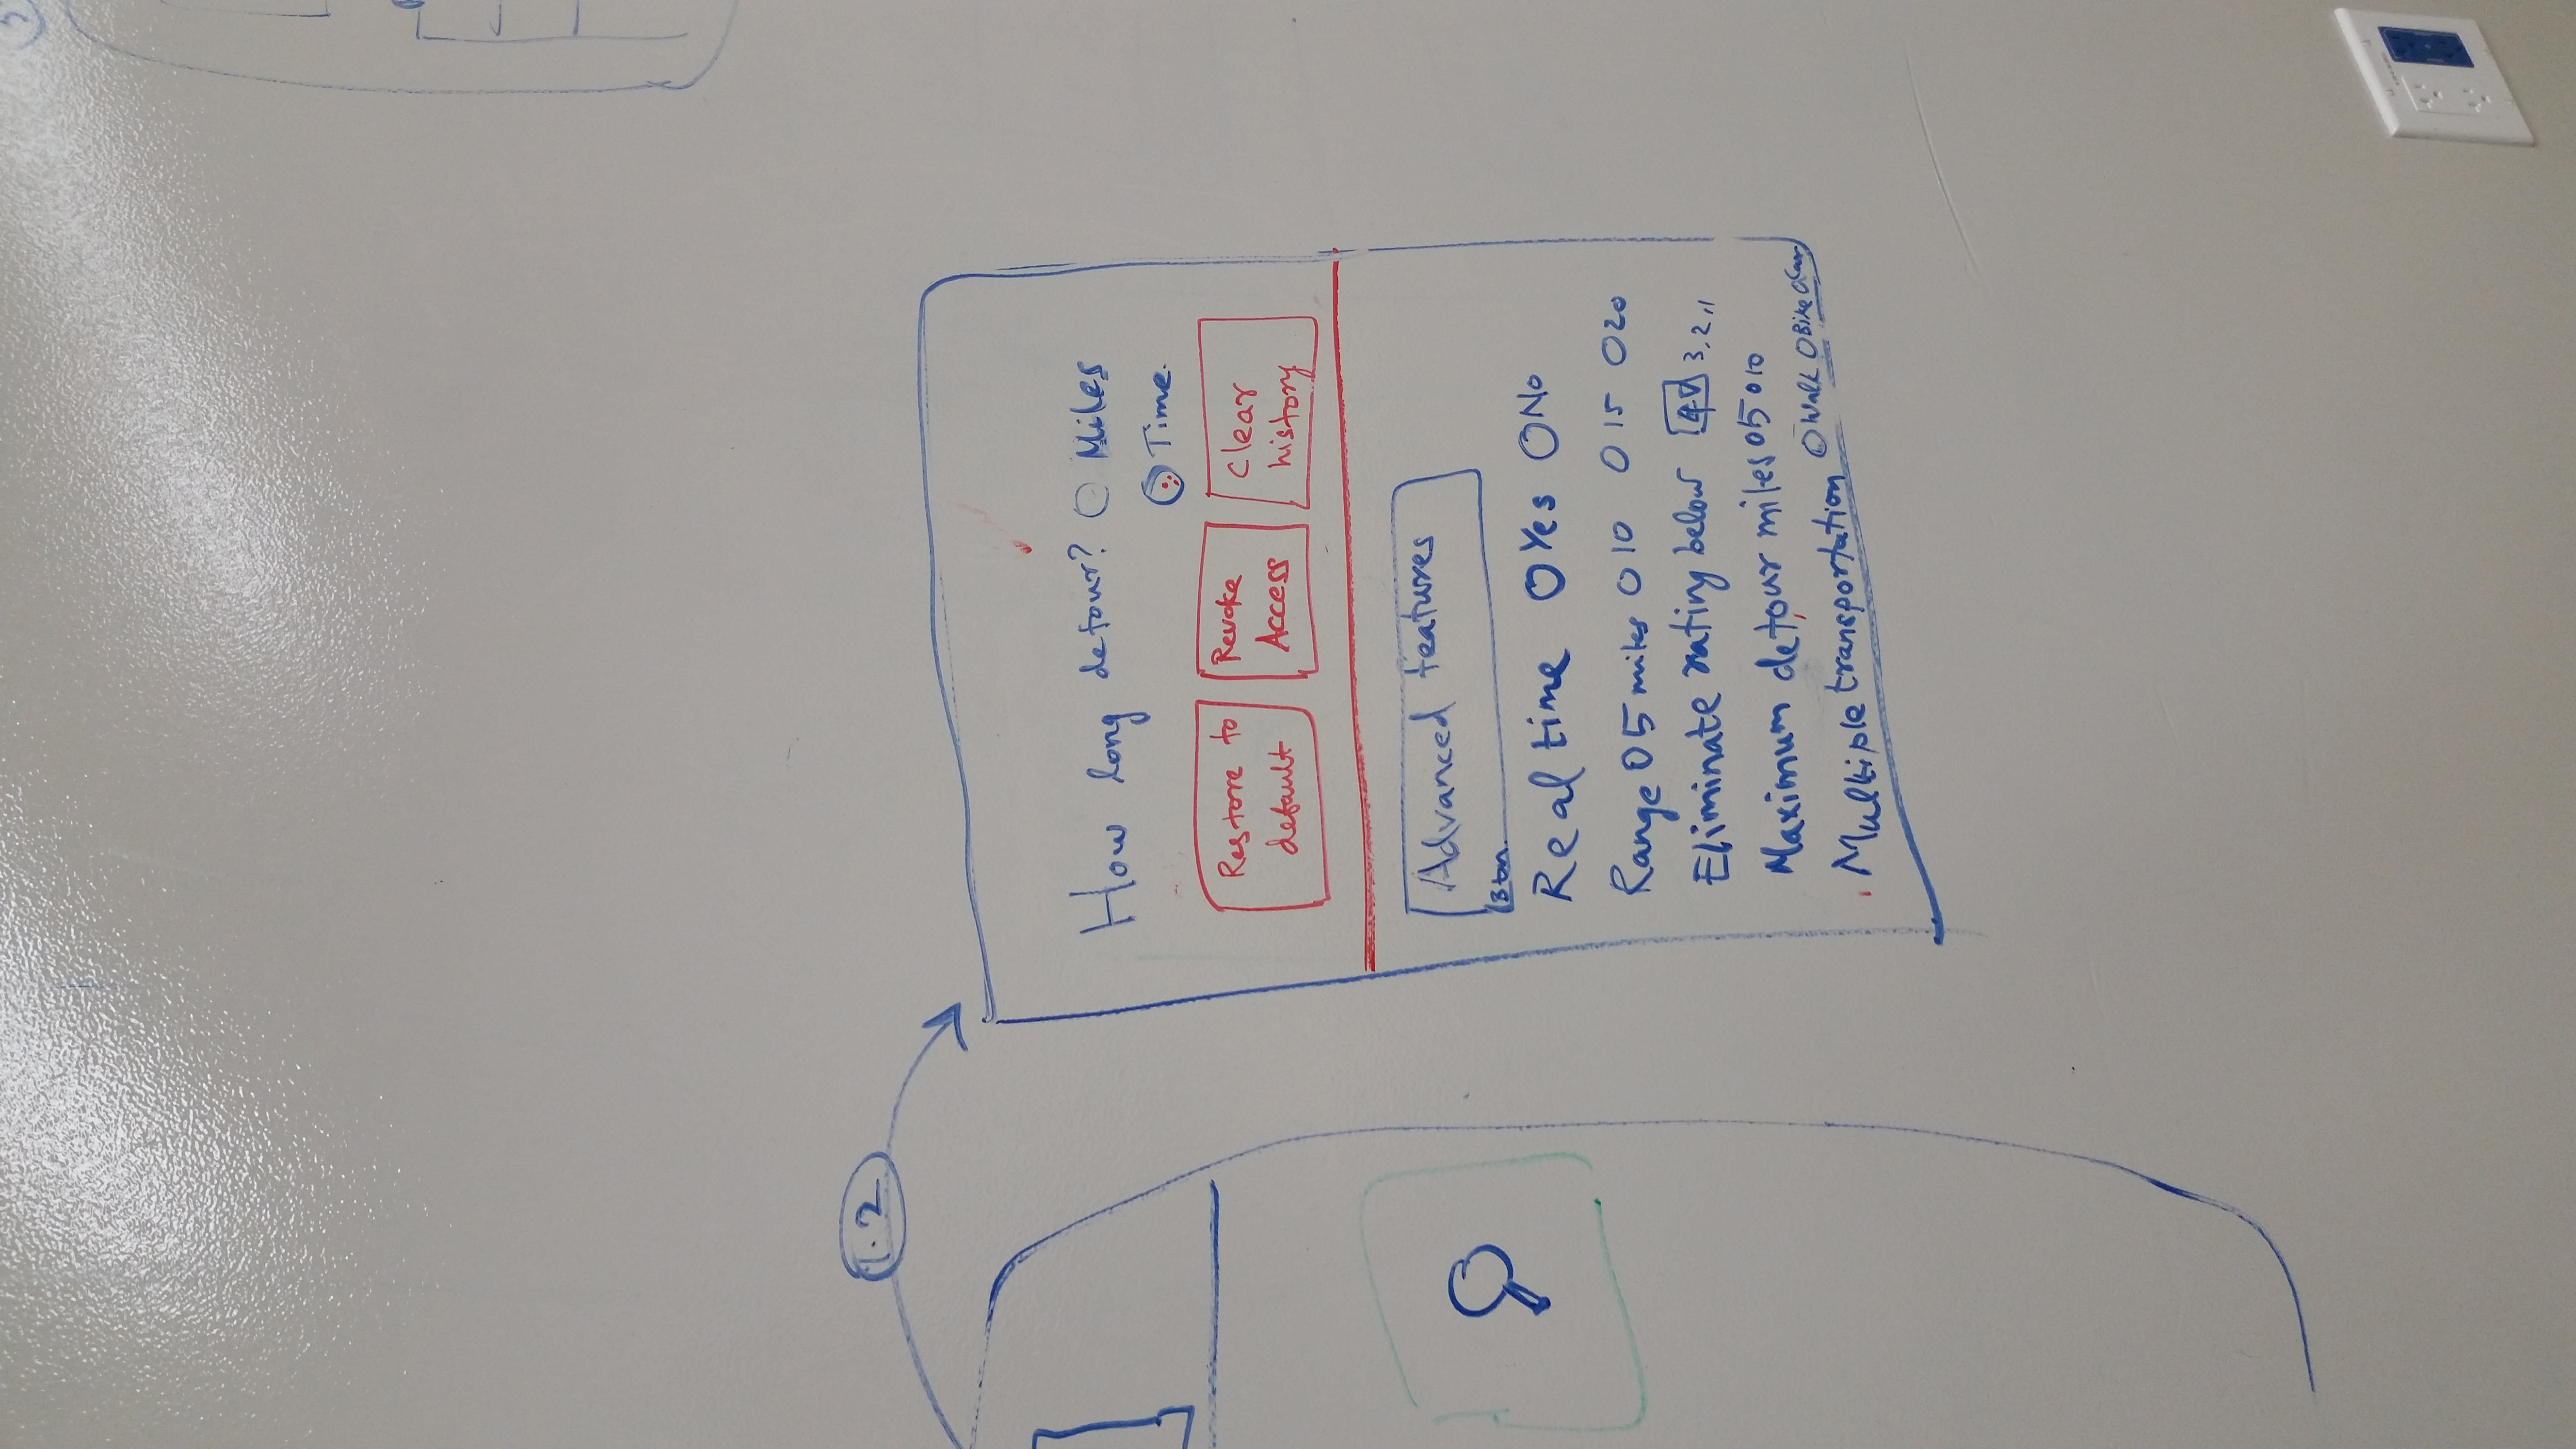 1.2
How long detour? Miles
Time.
Restore to default
Revoke Access
Clear history
Advanced features
Btn
Real time Yes No
Range 5 miles 10 15 20
Eliminate rating below 4 3,2,1
Maximum detour miles 5 10
Multiple transportation Walk Bike Car